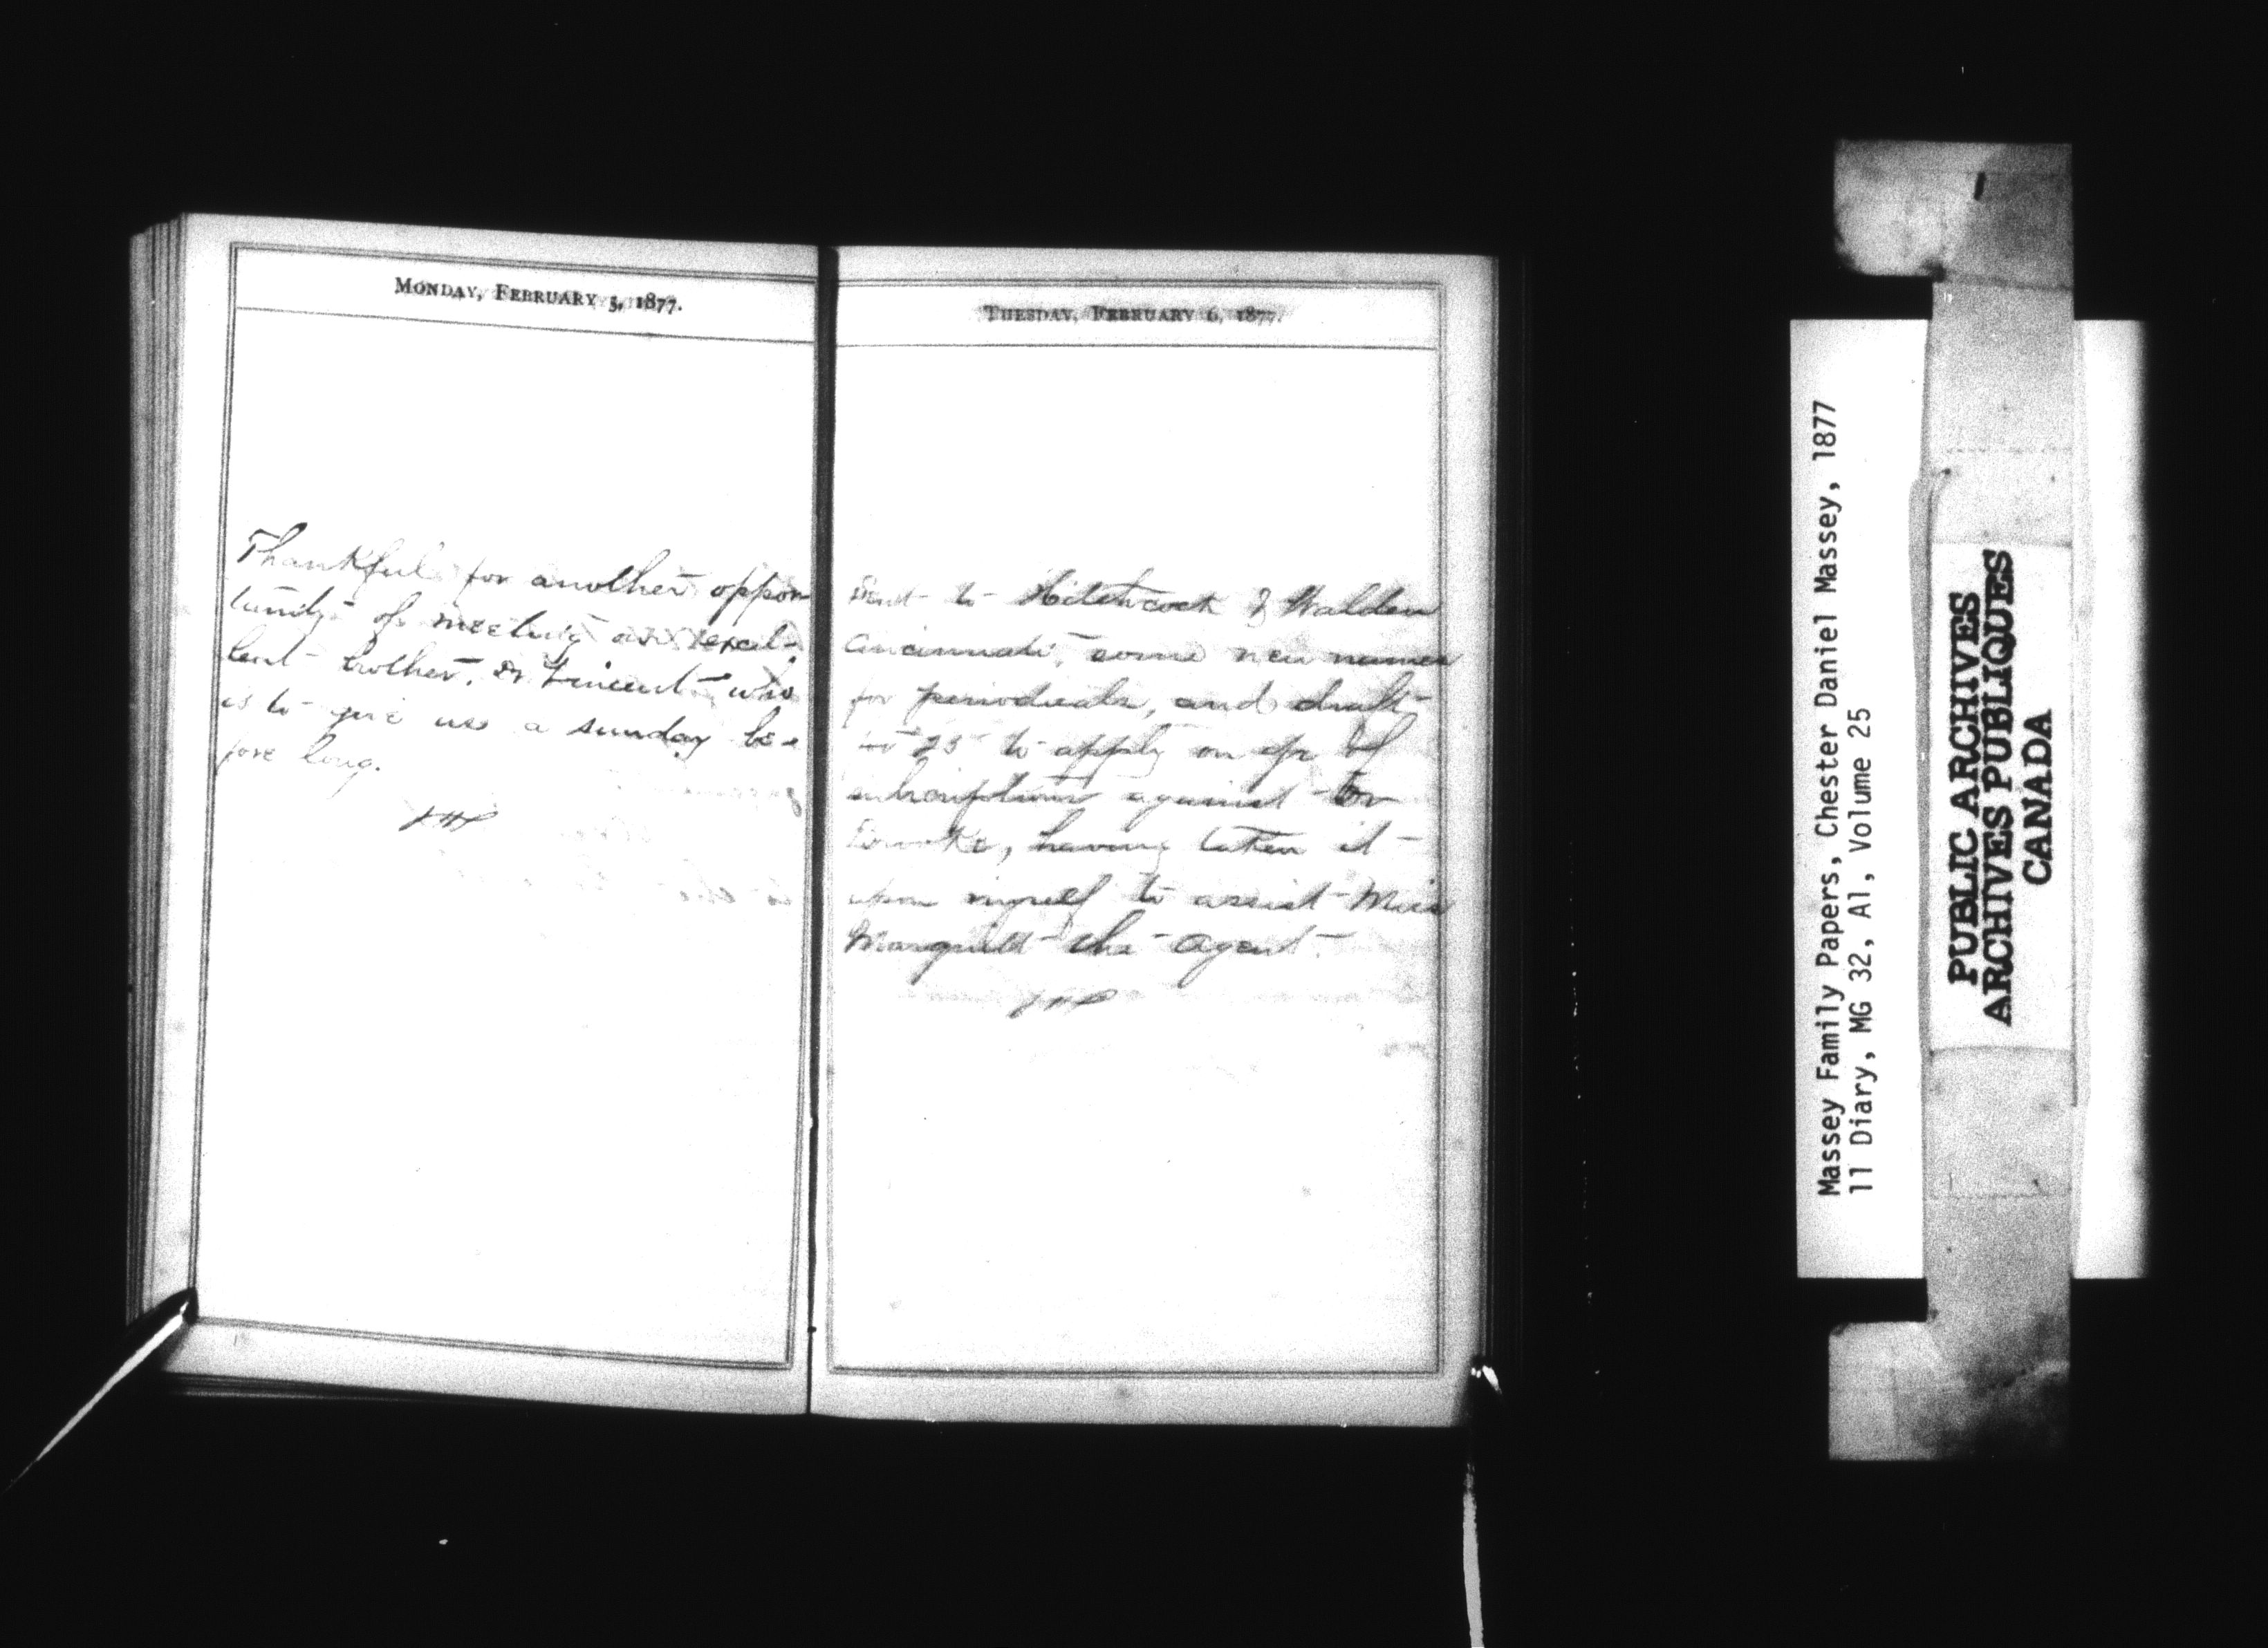 MONDAY, FEBRUARY 5, 1877.
Thankful for another oppor
tunity of meeting as excel-
lent brother, Dr Vincent who
is to give us a sunday be-
fore long.
TUESDAY, FEBRUARY 6, 1877.
Sent to Hitchcock & Walden
Cincinnati, some new names
for periodicals, and draft
25 to apply on of
subscriptions against
having taken it
upon myself to assist Miss
the agent.
Massey Family Papers, Chester Daniel Massey, 1877
11 Diary, MG 32, A1, Volume 25
PUBLIC ARCHIVES
ARCHIVES PUBLIQUES
CANADA